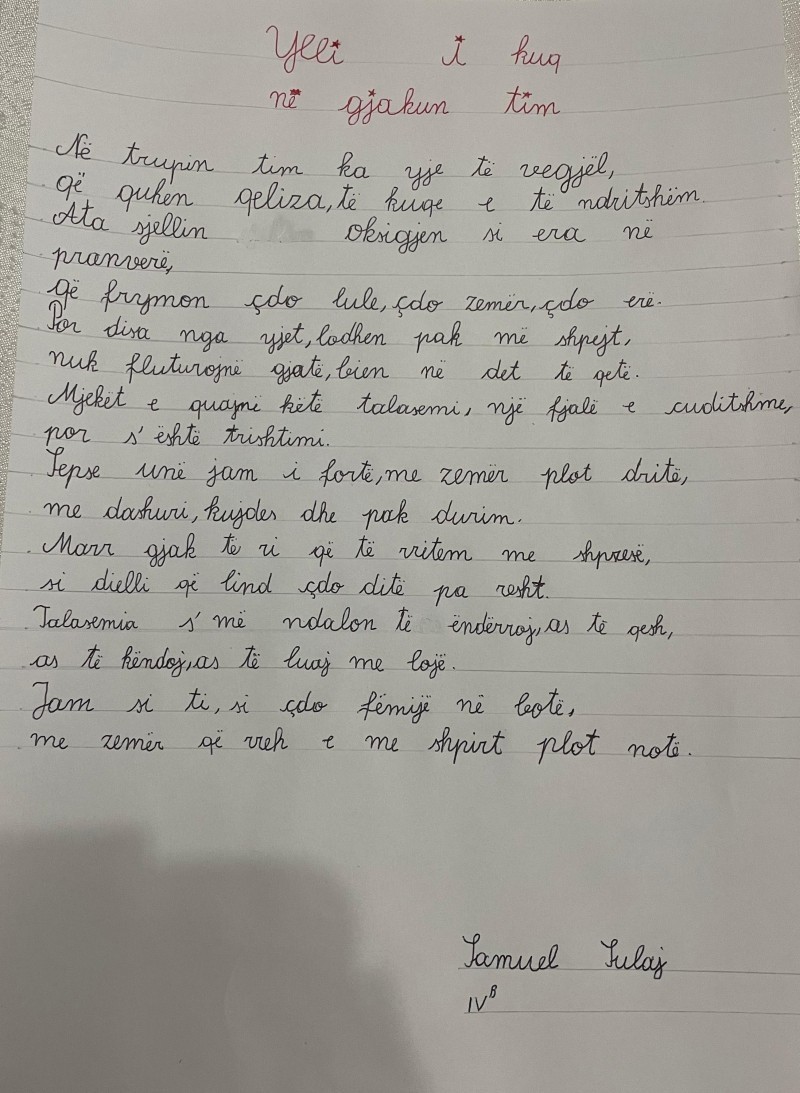 Ylli i kuq
në gjakun tim
Në trupin tim ka yje të vegjël,
që quhen qeliza, të kuqe e të ndritshëm.
Ata sjellin oksigjen si era në
pranverë,
që frymon çdo lule, çdo zemër, çdo erë.
Por disa nga yjet, lodhen pak më shpejt,
nuk fluturojnë gjatë, bien në det të qetë.
Mjekët e quajnë këtë talasemi, një fjalë e cuditshme,
por s'është trishtimi.
Sepse unë jam i fortë, me zemër plot dritë,
me dashuri, kujdes dhe pak durim.
Marr gjak të ri që të rritem me shpresë,
si dielli që lind çdo ditë pa resht.
Talasemia s'më ndalon të ëndërroj, as të qesh,
as të këndoj, as të luaj me lojë.
Jam si ti, si çdo fëmijë në botë,
me zemër që rreh e me shpirt plot notë.
Samuel Sulaj
IV B